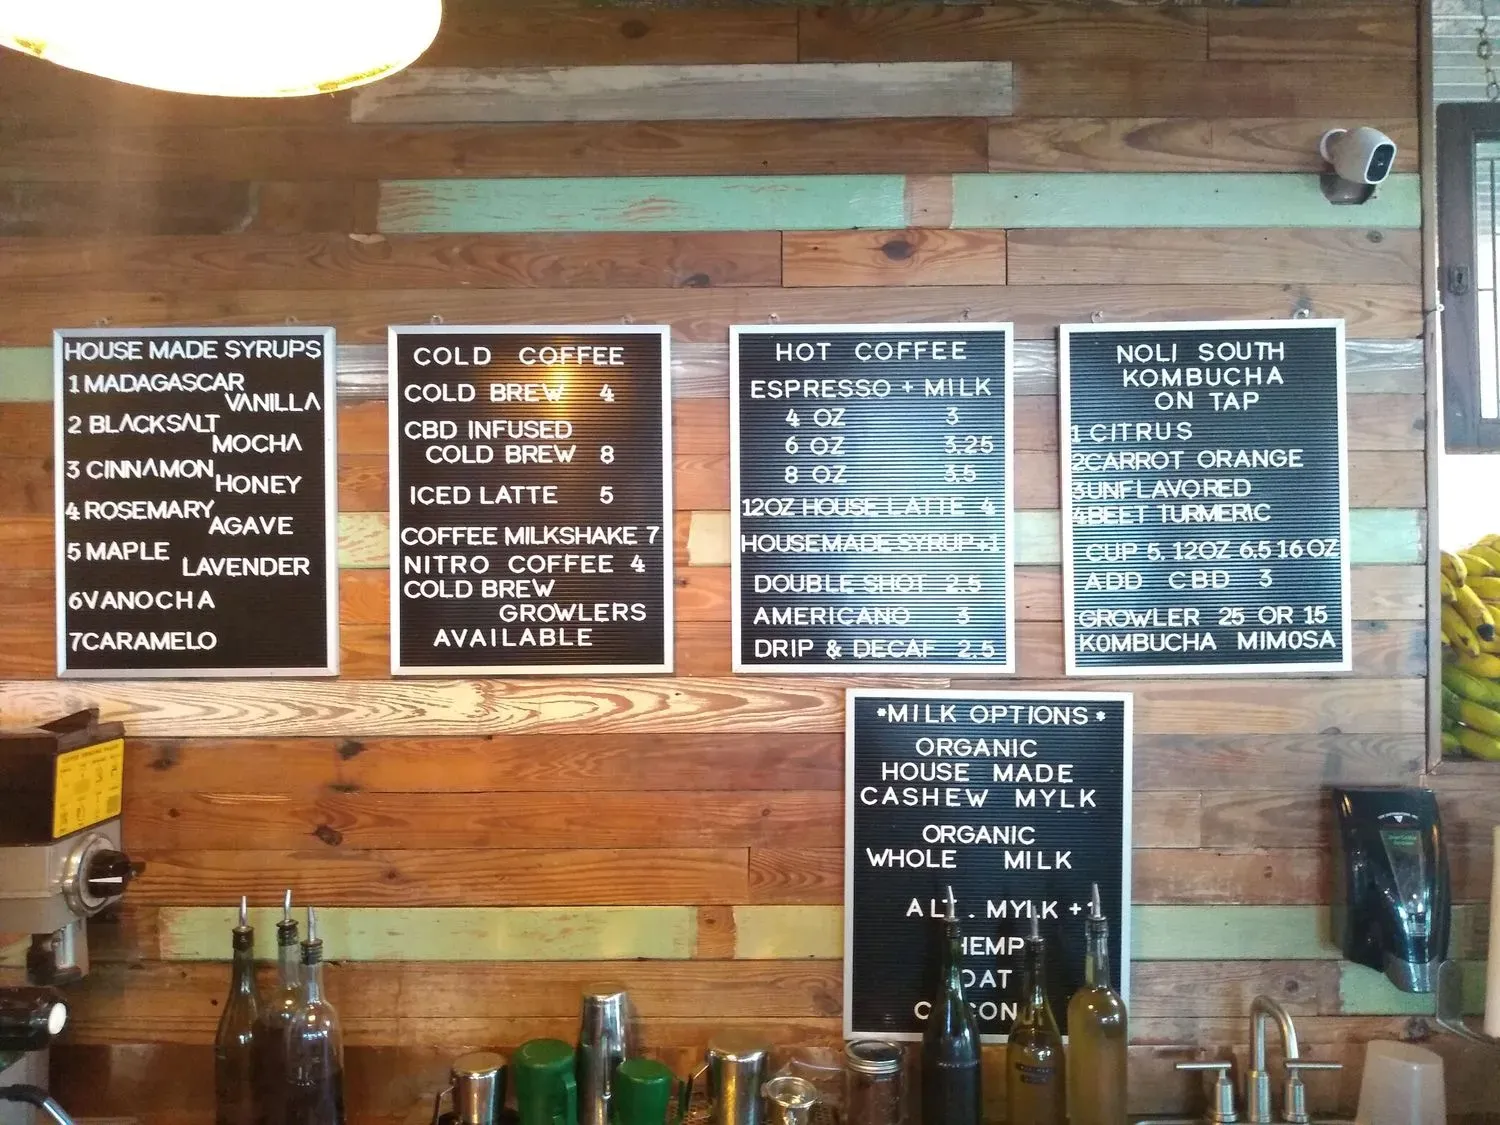 HOUSE MADE SYRUPS
1 MADAGASCAR
VANILLA
2 BLACKSALT
MOCHA
3 CINNAMON
HONEY
4 ROSEMARY
AGAVE
5 MAPLE
LAVENDER
6VANOCHA
7CARAMELO
COLD COFFEE
COLD BREW 4
CBD INFUSED
COLD BREW 8
ICED LATTE 5
COFFEE MILKSHAKE 7
NITRO COFFEE 4
COLD BREW
GROWLERS
AVAILABLE
HOT COFFEE
ESPRESSO + MILK
4 OZ 3
6 OZ 3.25
8 OZ 3.5
12OZ HOUSE LATTE 4
HOUSEMADE SYRUP+1
DOUBLE SHOT 2.5
AMERICANO 3
DRIP & DECAF 2.5
NOLI SOUTH
KOMBUCHA
ON TAP
1 CITRUS
2CARROT ORANGE
3UNFLAVORED
4BEET TURMERIC
CUP 5. 12OZ 6.5 16 OZ
ADD CBD 3
GROWLER 25 OR 15
KOMBUCHA MIMOSA
*MILK OPTIONS*
ORGANIC
HOUSE MADE
CASHEW MYLK
ORGANIC
WHOLE MILK
ALT. MYLK +1
HEMP
OAT